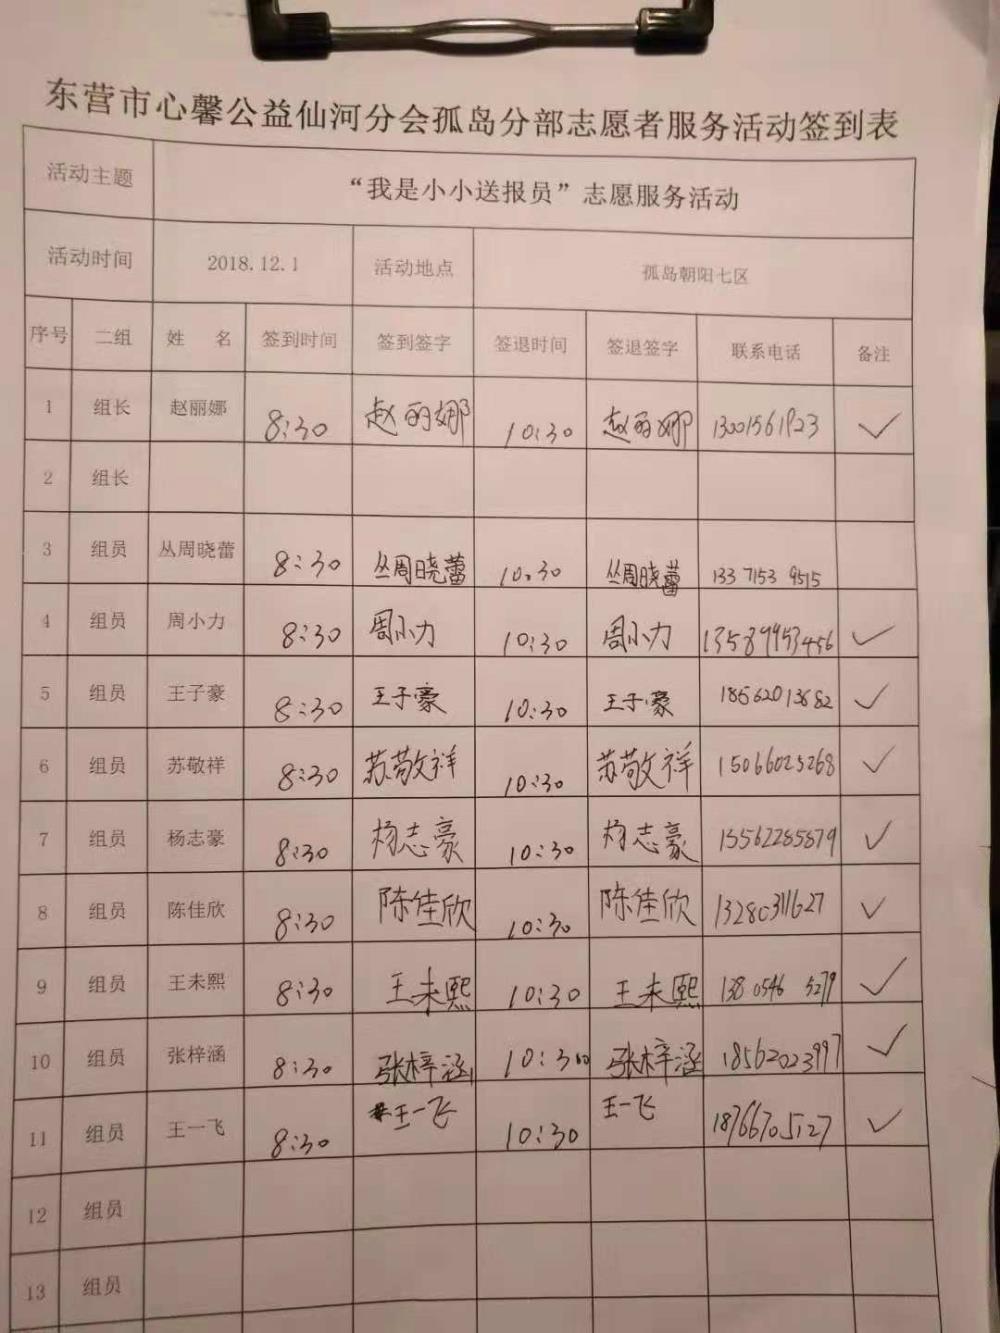 东营市心馨公益仙河分会孤岛分部志愿者服务活动签到表
活动主题 “我是小小送报员”志愿服务活动
活动时间 2018.12.1 活动地点 孤岛朝阳七区
序号 二组 姓 名 签到时间 签到签字 签退时间 签退签字 联系电话 备注
1 组长 赵丽娜 8:30 赵丽娜 10:30 赵丽娜 ✓
2 组长
3 组员 丛周晓蕾 8:30 丛周晓蕾 10:30 丛周晓蕾 133 7153 9515
4 组员 周小力 8:30 周小力 10:30 周小力 13589953456 ✓
5 组员 王子豪 8:30 王子豪 10:30 王子豪 18562013682 ✓
6 组员 苏敬祥 8:30 苏敬祥 10:30 苏敬祥 15066025268 ✓
7 组员 杨志豪 8:30 杨志豪 10:30 杨志豪 13562285879 ✓
8 组员 陈佳欣 8:30 陈佳欣 10:30 陈佳欣 13280311627 ✓
9 组员 王未熙 8:30 王未熙 10:30 王未熙 138 0546 5279 ✓
10 组员 张梓涵 8:30 张梓涵 10:30 张梓涵 18562023997 ✓
11 组员 王一飞 8:30 王一飞 10:30 王一飞 18766705127 ✓
12 组员
13 组员